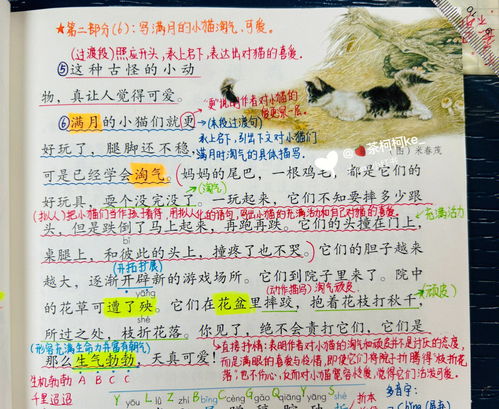 ★第二部分(6):写满月的小猫淘气,可爱。
(过渡段)照应开头,承上启下,表达出对猫的喜爱。
⑤这种古怪的小动
物,真让人觉得可爱。
⑥满月的小猫们就更
(体段过渡句)
好玩了,腿脚还不稳,
承上启下,引出下文对小猫们
满月时淘气的具体描写。
茶柯柯ke
(图)米春茂
可是已经学会淘气。(妈妈的尾巴,一根鸡毛,都是它们的
(淘气)
好玩具,耍个没完没了。一玩起来,它们不知要摔多少跟
(拟人)把小猫们当作孩子看待,用拟人化的语句,写出小猫的充满活力和自己对猫的喜爱。
充满活力
头,但是跌倒了马上起来,再跑再跌。它们的头撞在门上,
bǐ
桌腿上,和彼此的头上,撞疼了也不哭。)它们的胆子越来
(开拓扩展)
越大,逐渐开辟新的游戏场所。它们到院子里来了。院中
yāng
(动作描写)淘气顽皮
的花草可遭了殃。它们在花盆里摔跤,抱着花枝打秋千,
顽皮
shé
所过之处,枝折花落。你见了,绝不会责打它们,它们是
(形容充满生命力,富有朝气)
直接抒情:表明作者对小猫的淘气和顽皮并不是打氏的态度,
那么生气勃勃,天真可爱!
而是满眼的喜爱与怜惜,即使它们将院子折腾得"枝折花
落"也不伤心,反而对小猫宽容疼爱,觉得它们活泼可爱。
生机勃勃 A B C C
千里迢迢
Y yōu L lǜ Z zhī B bǐng C céng G gǎo Q qiāng Y yāng S shé
折本
多音字: